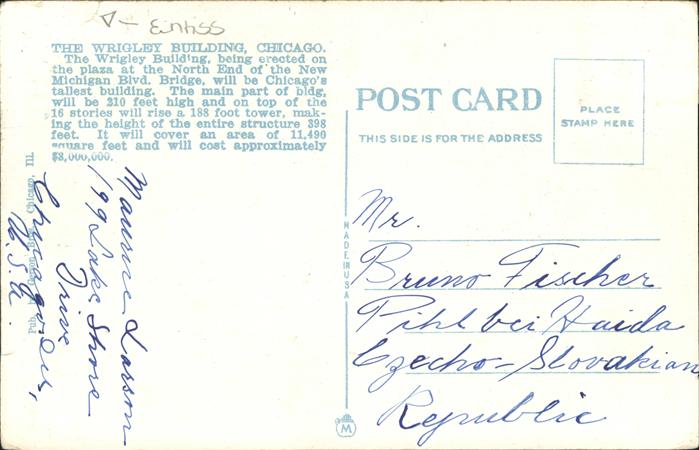 THE WRIGLEY BUILDING, CHICAGO.
The Wrigley Building, being erected on
the plaza at the North End of the New
Michigan Blvd. Bridge, will be Chicago's
tallest building. The main part of bldg,
will be 210 feet high and on top of the
16 stories will rise a 188 foot tower, mak-
ing the height of the entire structure 398
feet. It will cover an area of 11,490
square feet and will cost approximately
$8,000,000.
POST CARD
THIS SIDE IS FOR THE ADDRESS
PLACE
STAMP HERE
Mr.
Bruno Fischer
Pihl bei Haida
Czecho-Slovakian
Republic
Larson
199 Lake Shore
Drive
Chicago, Ill,
U.S.A.
Pub. Chicago, Ill.
MADE IN USA
M